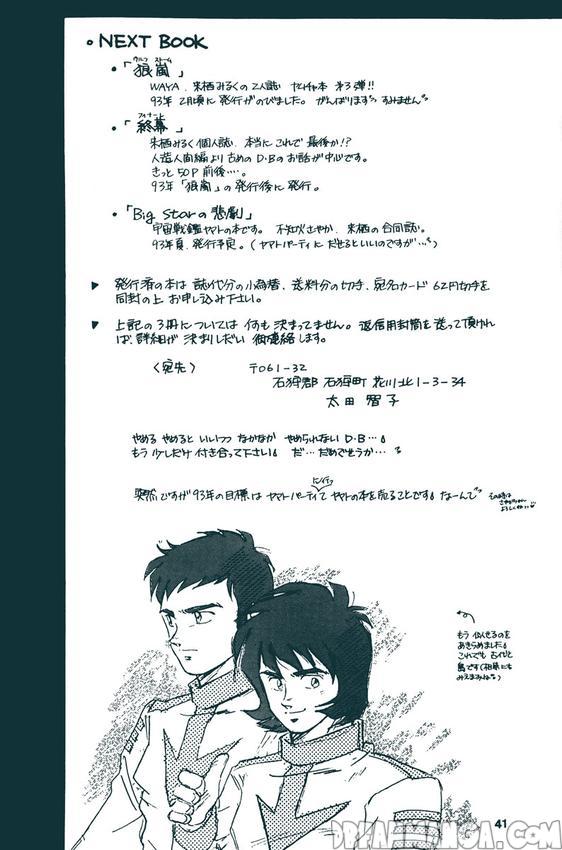 。NEXT BOOK
・「狼嵐」
ウルフ ストーム
WAYA、来栖みるくの2人誌 ヤムチャ本 第3弾!!
93年 2月頃に発行がのびました。がんばります すみません
・「終幕」
フィナーレ
来栖みるく個人誌。本当にこれで最後か!?
人造人間編より古めのD・Bのお話が中心です。
きっと50P前後…。
93年「狼嵐」の発行後に発行。
・「Big Starの悲劇」
宇宙戦鑑ヤマトの本です。不知火さやか、来栖の合同誌。
93年夏、発行予定。(ヤマトパーティにだせるといいのですが…)
▶ 発行済の本は 誌代分の小為替、送料分の切手、宛名カード 62円切手を
同封の上 お申し込み下さい。
▶ 上記の3冊については 何も決まってません。返信用封筒を送って頂けれ
ば、詳細が 決まりしだい 御連絡します。
〈宛先〉 〒061-32
石狩郡 石狩町 花川北1-3-34
太田 智子
やめる やめると いいつつ なかなか やめられない D・B…
もう 少しだけ 付き合って下さい だ…だめでしょうか…
突然ですが 93年の目標は ヤマトパーティで ヤマトの本を売ることです なーんて
もう 似せるのを
あきらめました
これでも 古代と
島です(相原にも
みえますね)
41
DREAMMANGA.COM